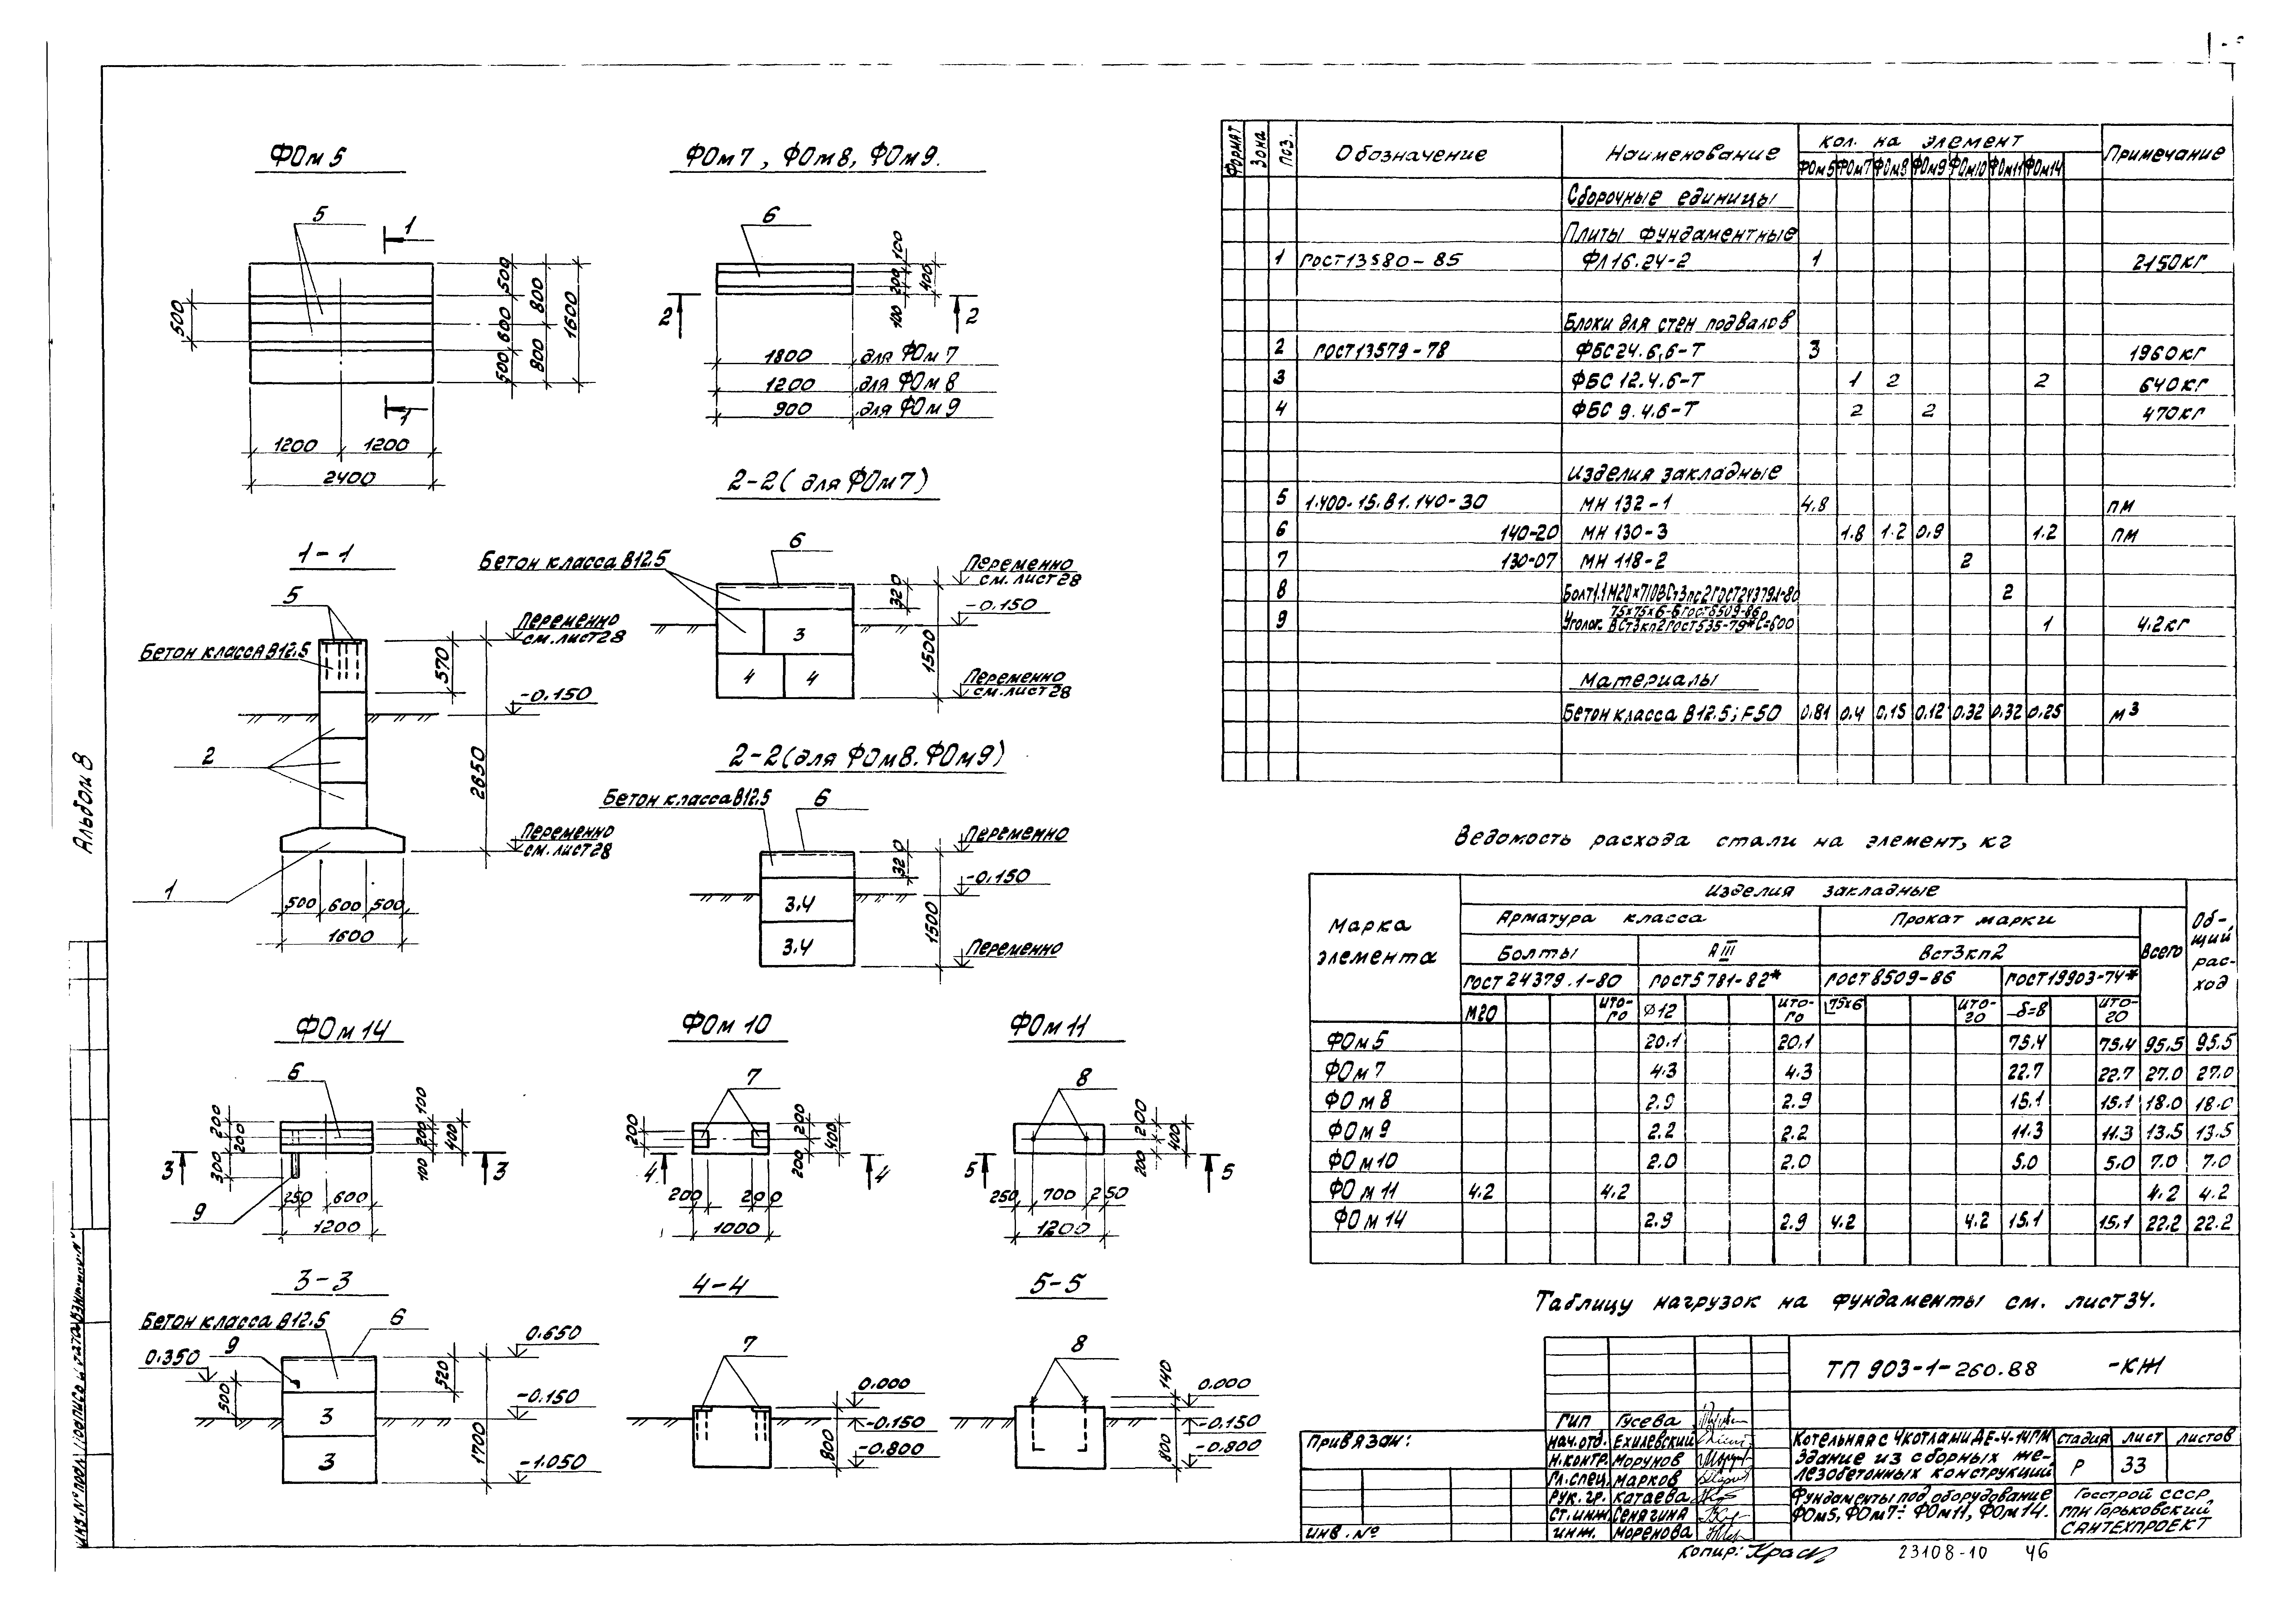 ФОм 5
5
1
1
500
500
600
500
800
800
1600
1200
1200
2400
ФОм 7, ФОм 8, ФОм 9.
6
100
200
100
400
2
2
1800 для ФОм 7
1200 для ФОм 8
900 для ФОм 9
2-2 ( для ФОм 7)
Бетон класса В12.5
6
Переменно
см. лист 28
320
-0.150
3
1500
4
4
Переменно
см. лист 28
1-1
5
Бетон класса В12.5
Переменно
см. лист 28
570
-0.150
2
2850
Переменно
см. лист 28
1
500
600
500
1600
2-2 (для ФОм 8. ФОм 9)
Бетон класса В12.5
6
Переменно
320
-0.150
3.4
1500
3.4
Переменно
ФОм 14
6
200
200
300
100
200
100
400
3
3
9
250
600
1200
ФОм 10
7
200
200
200
400
4
4
200
200
1000
ФОм 11
8
200
200
400
5
5
250
700
250
1200
3-3
Бетон класса В12.5
6
9
0.650
0.350
500
520
-0.150
3
1700
3
-1.050
4-4
7
0.000
-0.150
800
-0.800
5-5
8
140
0.000
-0.150
800
-0.800
Формат Зона Поз. Обозначение Наименование Кол. на элемент Примечание
ФОм5 ФОм7 ФОм8 ФОм9 ФОм10 ФОм11 ФОм14
Сборочные единицы
Плиты фундаментные
1 ГОСТ 13580-85 ФЛ16.24-2 1 2150кг
Блоки для стен подвалов
2 ГОСТ 13579-78 ФБС 24.6.6-Т 3 1960кг
3 ФБС 12.4.6-Т 1 2 2 640кг
4 ФБС 9.4.6-Т 2 2 470кг
Изделия закладные
5 1.400-15.В1.140-30 МН 132-1 4.8 пм
6 140-20 МН 130-3 1.8 1.2 0.9 1.2 пм
7 130-07 МН 118-2 2
8 Болт1.1М20×710ВСт3пс2ГОСТ24379.1-80 2
9 Уголок 75×75×6-Б ГОСТ8509-86 ВСт3кп2ГОСТ535-79* ℓ=600 1 4.2кг
Материалы
Бетон класса В12.5; F50 0.81 0.4 0.15 0.12 0.32 0.32 0.25 м³
Ведомость расхода стали на элемент, кг
Марка элемента
Изделия закладные
Общий расход
Арматура класса Прокат марки Всего
Болты АIII Вст3кп2
ГОСТ 24379.1-80 ГОСТ 5781-82* ГОСТ 8509-86 ГОСТ 19903-74*
М20 Итого Ø12 Итого ∟75×6 Итого -δ=8 Итого
ФОм 5 20.1 20.1 75.4 75.4 95.5 95.5
ФОм 7 4.3 4.3 22.7 22.7 27.0 27.0
ФОм 8 2.9 2.9 15.1 15.1 18.0 18.0
ФОм 9 2.2 2.2 11.3 11.3 13.5 13.5
ФОм 10 2.0 2.0 5.0 5.0 7.0 7.0
ФОм 11 4.2 4.2 4.2 4.2
ФОм 14 2.9 2.9 4.2 4.2 15.1 15.1 22.2 22.2
Таблицу нагрузок на фундаменты см. лист 34.
ТП 903-1-260.88 -КЖ
Привязан:
Инв. №
ГИП Гусева
Нач.отд. Ехилевский
Н.контр. Морунов
Гл.спец. Марков
Рук. гр. Катаева
Ст.инж. Сенягина
Инж. Моренова
Котельная с 4 котлами ДЕ-4-14ГМ
Здание из сборных же-
лезобетонных конструкций
Стадия Лист Листов
Р 33
Фундаменты под оборудование
ФОм5, ФОм7÷ФОм11, ФОм14.
Госстрой СССР
ГПИ Горьковский
САНТЕХПРОЕКТ
Копир:
23108-10 46
Альбом 8
Инв.№ подл. Подпись и дата Взам.инв.№